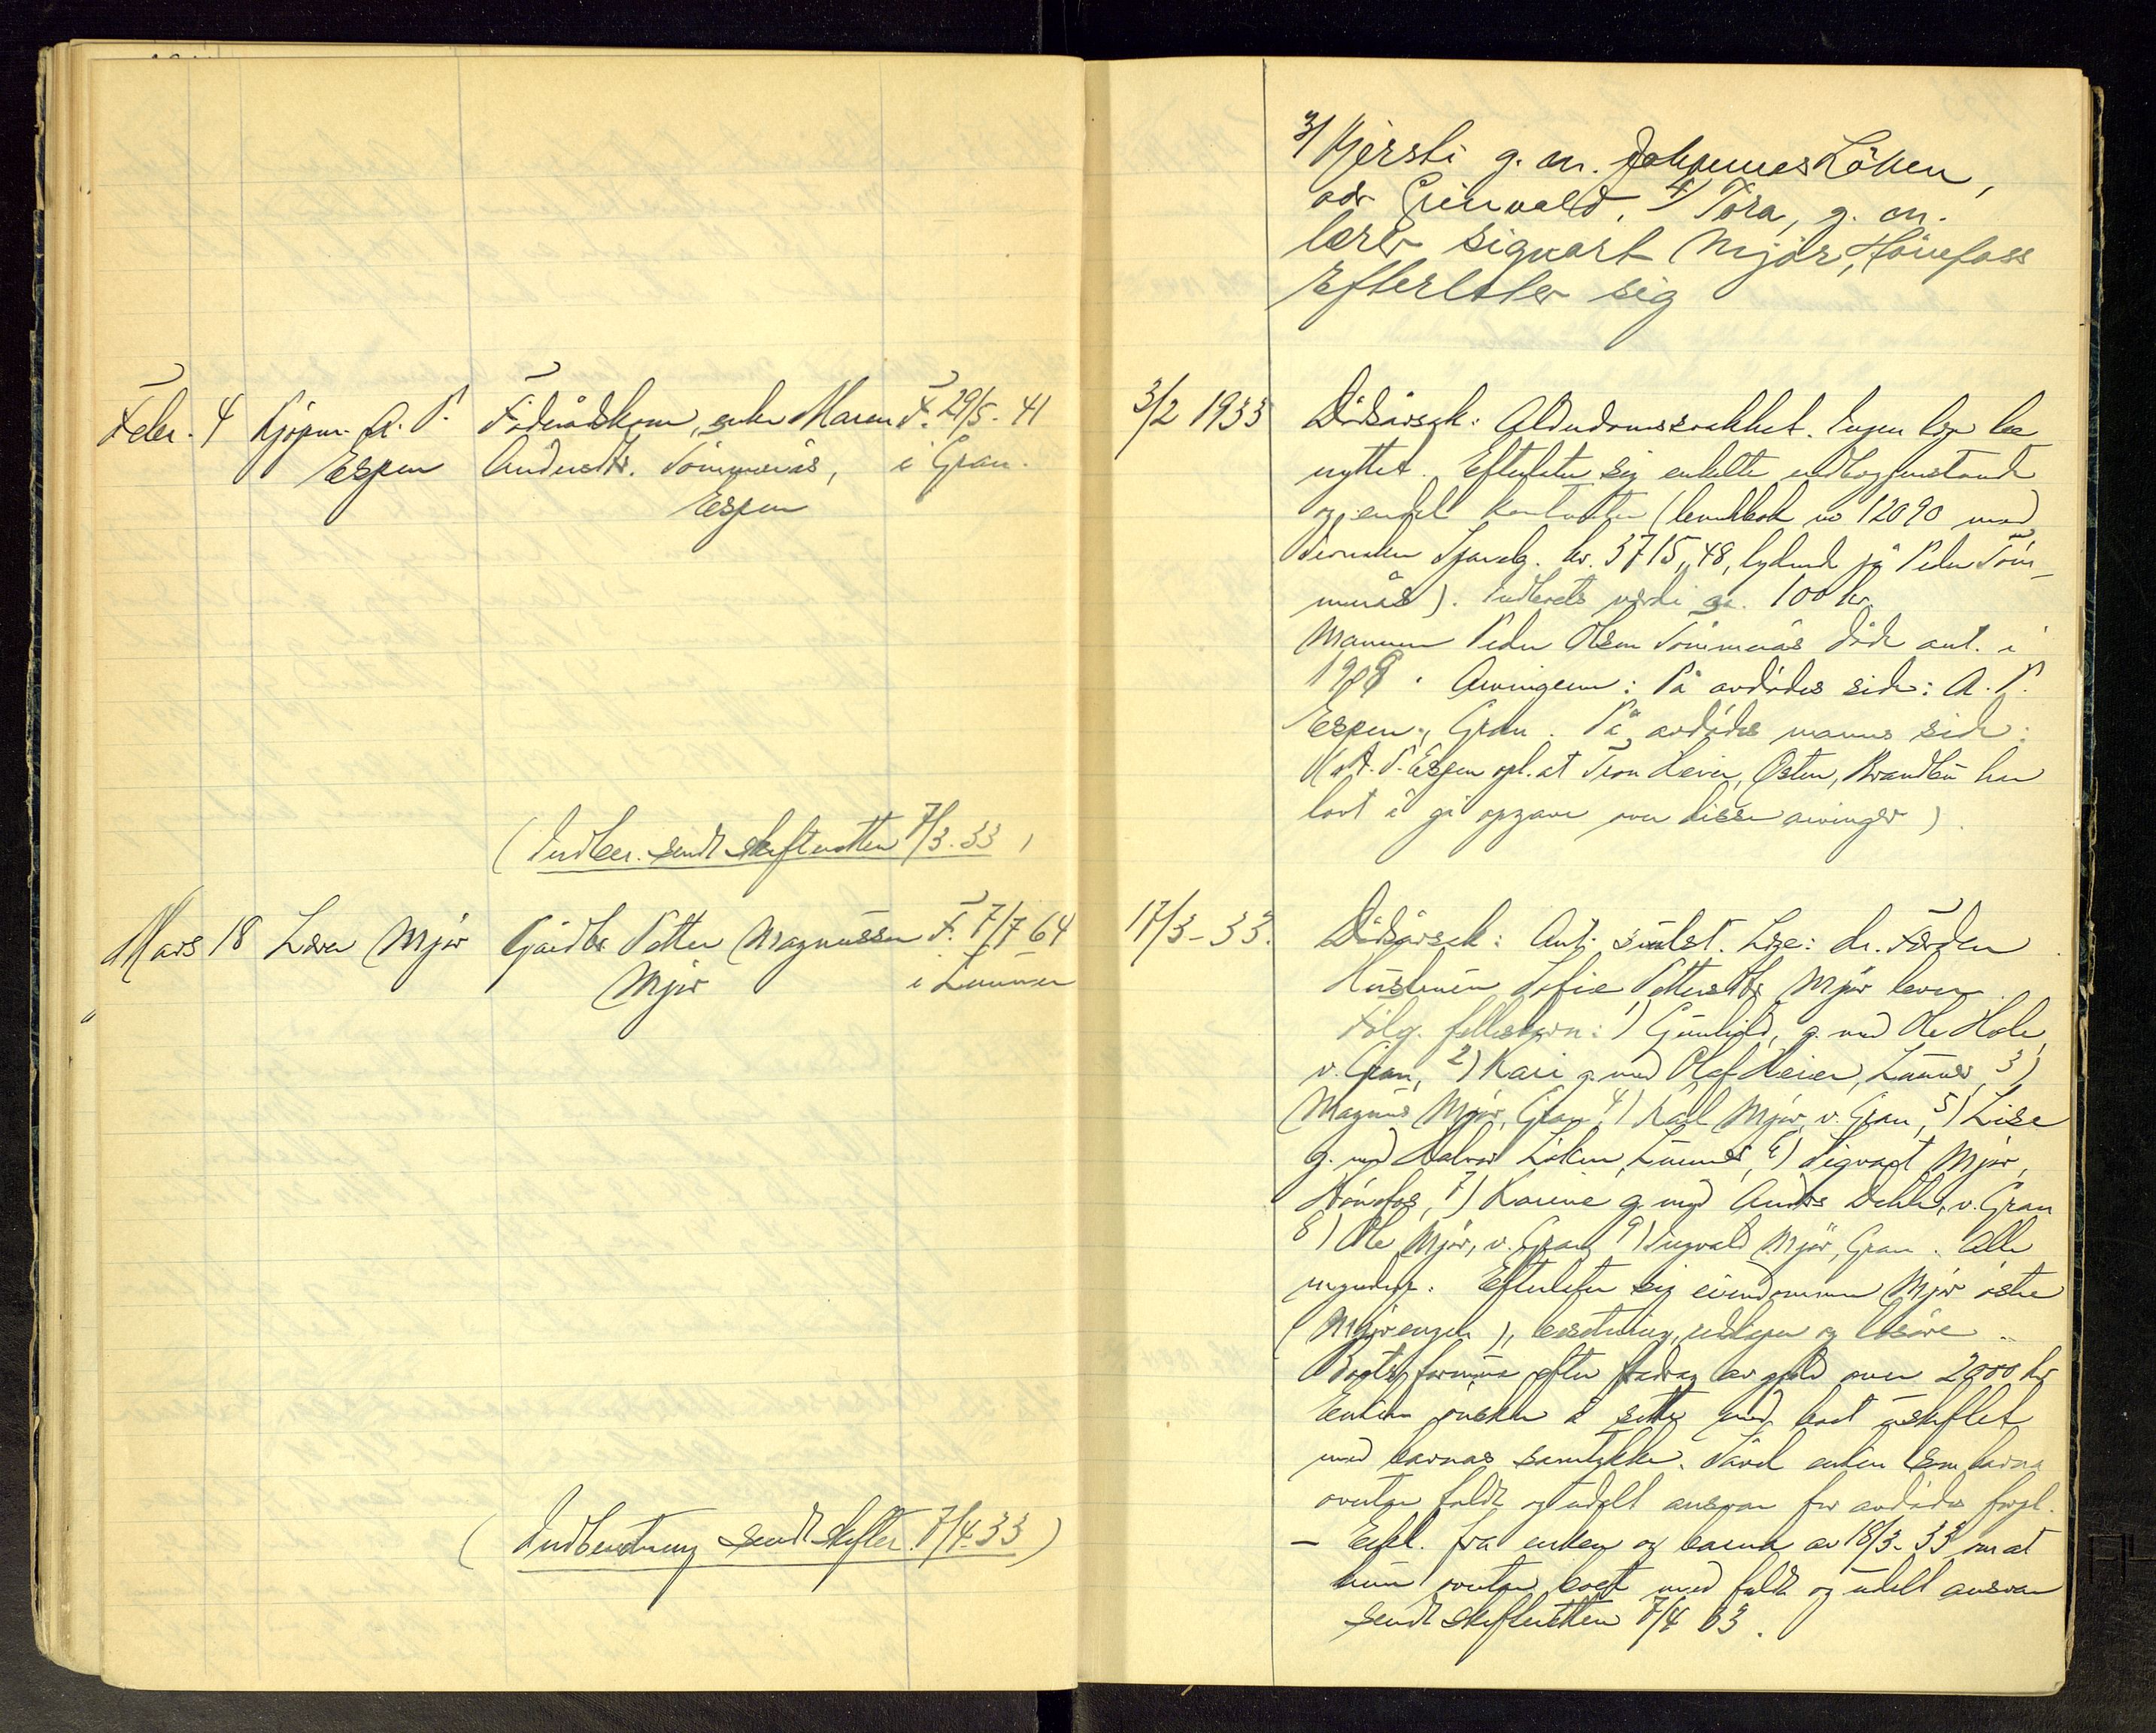 3) Kjersti g. m. Johannes Löken,
adr Grinvold, 4) Tora, g. m.
lærer Sigvart Mjör, Hönefoss
Efterlater sig
Febr. 4 Kjöpm. A. P. Föderådskone, enke Maren F. 29/5-41 3/2 1933 Dödsårsak: Alderdomssvakhet. Ingen lege be
Espen Andersdtr. Tömmerås, i Gran. nyttet. Efterlater sig enkelte indbogjenstande
Espen og endel kontanter (bankbok no 12090 med
Jevnaker Sparebk. kr. 3715,48, lydende på Peder Töm-
merås). Indboets verdi ca. 100 kr.
Mannen Peder Olsen Tömmerås döde ant. i
1908. Arvingene: På avdödes side: A. P.
Espen, Gran. På avdödes manns side:
(A. P. Espen opl. at Tron Heier, Østen, Brandbu har
lovt å gi opgave over disse arvinger).
(Indber. sendt skifteretten 7/3.33)
Mars 18 Lærer Mjör Gårdbr. Petter Magnussen F. 7/7 64 17/3-33. Dödsårsak: Ant. Lge: dr. Förden.
Mjör i Lunner Hustruen Sofie Pettersdtr. Mjör lever.
Fölg. fellesbarn: 1) Gunhild, g. med Ole Hole,
v. Gran, 2) Kari g. med Olaf Heier, Lunner, 3)
Magnus Mjör, Gran, 4) Karl Mjör, v. Gran, 5) Lise
g. med Halvor Löken, Lunner, 6) Sigvart Mjör,
Hönefos, 7) Karine g. med Anders Dehli, v. Gran
8) Ole Mjör, v. Gran, 9) Ingvald Mjör, Gran. Alle
myndige. Efterlater sig eiendommen Mjör östre
(Mjörengen), besetning, redskaper og lösöre.
Boets formue efter fradrag av gjeld over 2000 kr
Enken önsker å sitte med boet uskiftet
med barnas samtykke. Såvel enken som barna
overtar fuldt og udelt ansvar for avdödes forpl.
- Erkl. fra enken og barna av 18/3-33 om at
hun overtar boet med fuldt og udelt ansvar
sendt skifteretten 7/4 33.
(Indberetning sendt skifter. 7/4-33)